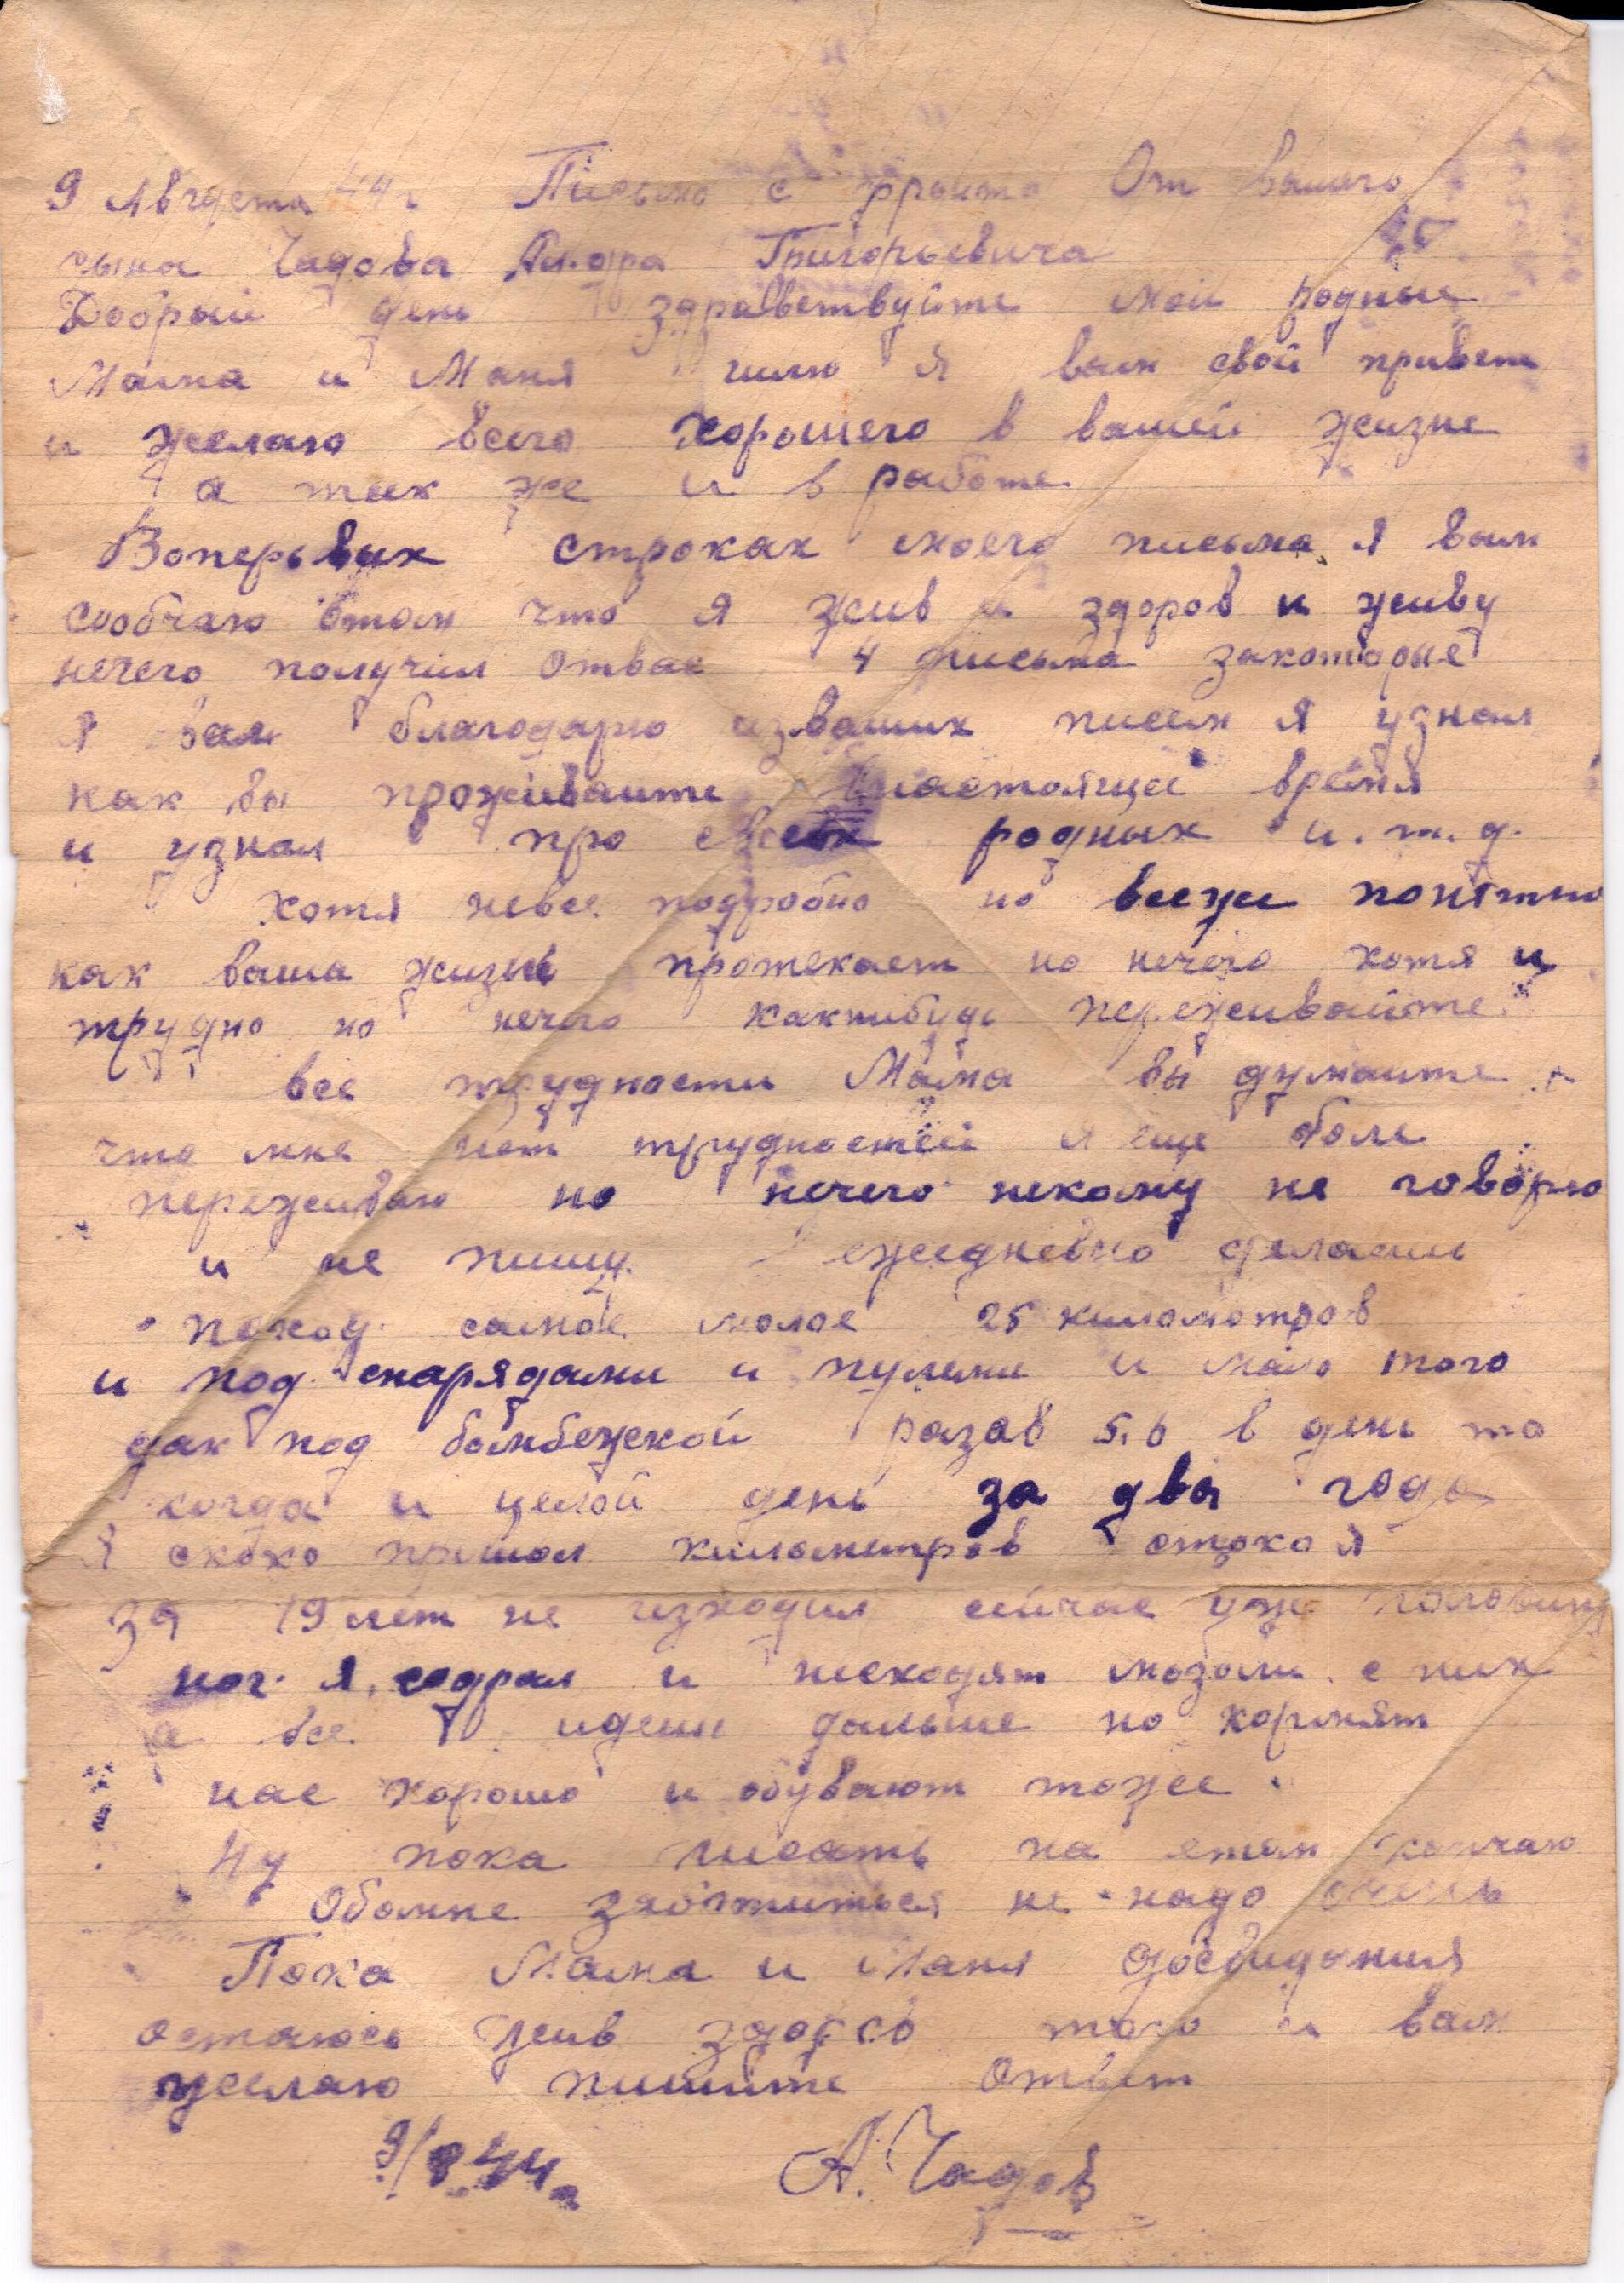 9 Августа 44 г Письмо с фронта От вашего
сына Чадова Ал-дра Григорьевича
Добрый день здравствуйте мои родные
Мама и Маня шлю я вам свой привет
и желаю всего хорошего в вашей жизне
а так же и в работе
Воперьвых строках моего письма я вам
сообчаю отом что я жив и здоров и живу
нечего получил отвас 4 письма закоторые
я вам благодарю изваших писем я узнал
как вы проживаите внастоящее время
и узнал про всех родных и.т.д.
хотя невсе подробно но всеже понятно
как ваша жизнь протекает но нечего хотя и
трудно но нечего какнибудь переживайте
все трудности Мама вы думаите
что мне нет трудностей я еще боле
переживаю но нечего некому не говорю
и не пишу. ежедневно делаем
поход самое малое 25 километров
и под снарядами и пулями и мало того
дак под бомбежкой разов 5.6 в день то
когда и целой день за два года
я скоко прошол километров стоко я
за 19 лет не изходил сейчас уж половину
ног я содрал и несходят мозоли с них
а все идем дальше но кормят
нас хорошо и обувают тоже.
Ну пока писать на етом кончаю
Обомне заботиться не надо очень
Пока Мама и Маня досвидания
остаюсь жив здоров того и вам
желаю пишите ответ
9/8.44г А. Чадов